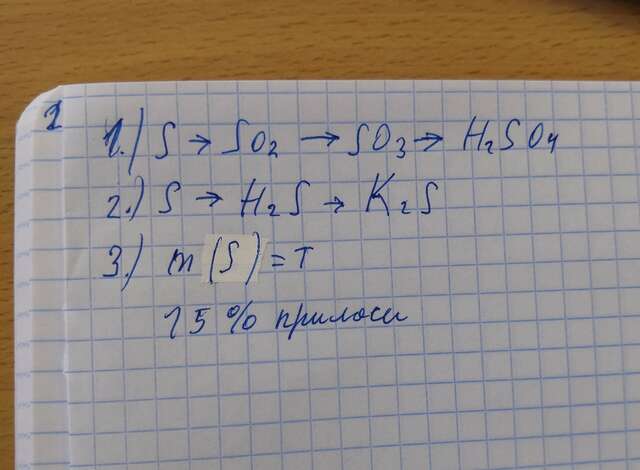 1
1.) S → SO2 → SO3 → H2SO4
2.) S → H2S → K2S
3.) m (S) = т
15% прилоси